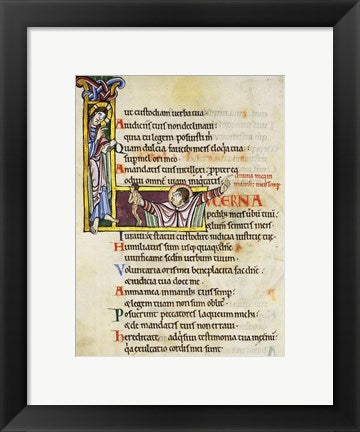 ut custodiam uerba tua
A iudiciis tuis non declinaui:
quia tu legem posuisti m̄
Quam dulcia faucibus meis eloquia tua:
sup mel ori meo
A mandatis tuis intellexi: ppterea
odiui omnē uiam iniquitatis
anima mea in
manib; meis semp
LUCERNA
pedib; meis ūbū tuū:
&lumen semitis meis
Iuraui &statui custodire iudicia iusticię tuę
Humiliatus sum usq;quaq; dne:
uiuifica me scdm uerbum tuum
Voluntaria oris mei beneplacita fac dne:
&iudicia tua doce me
Anima mea in manib; tuis semp:
&legem tuam non sum oblit'
Posuerunt peccatores laqueum mchi:
&de mandatis tuis non erraui
Hereditate adqsiui testimonia tua
qa exultatio cordis mei sunt